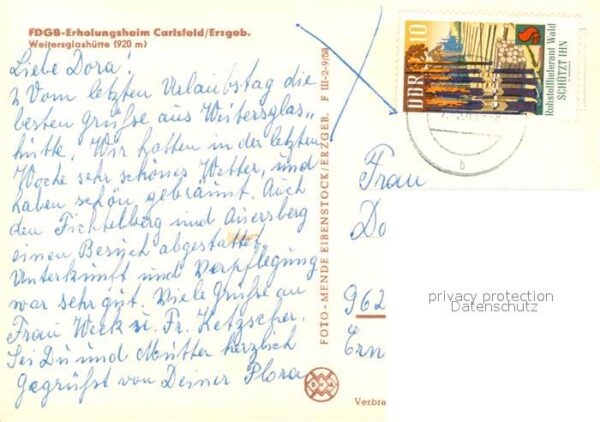 FDGB-Erholungsheim Carlsfeld/Erzgeb.
Weitersglashütte (920 m)
Liebe Dora!
Vom letzten Urlaubstag die
besten grüße aus Weitersglas„
hütte. Wir hatten in der letzten
Woche sehr schönes Wetter, und
haben schön gebräunt. Auch
den Fichtelberg und Auersberg
einen Besuch abgestattet.
Unterkunft und Verpflegung
war sehr gut. Viele Grüße an
Frau Weck u. Fr. Ketzscher.
Sei Du und Mutter herzlich
Gegrüßt von Deiner Flora
FOTO-MENDE EIBENSTOCK/ERZGEB. F III-2-9/68
DDR 10
Rohstofflieferant Wald
SCHÜTZT IHN
b
Frau
Do
962
Ern
privacy protection
Datenschutz
Verbra